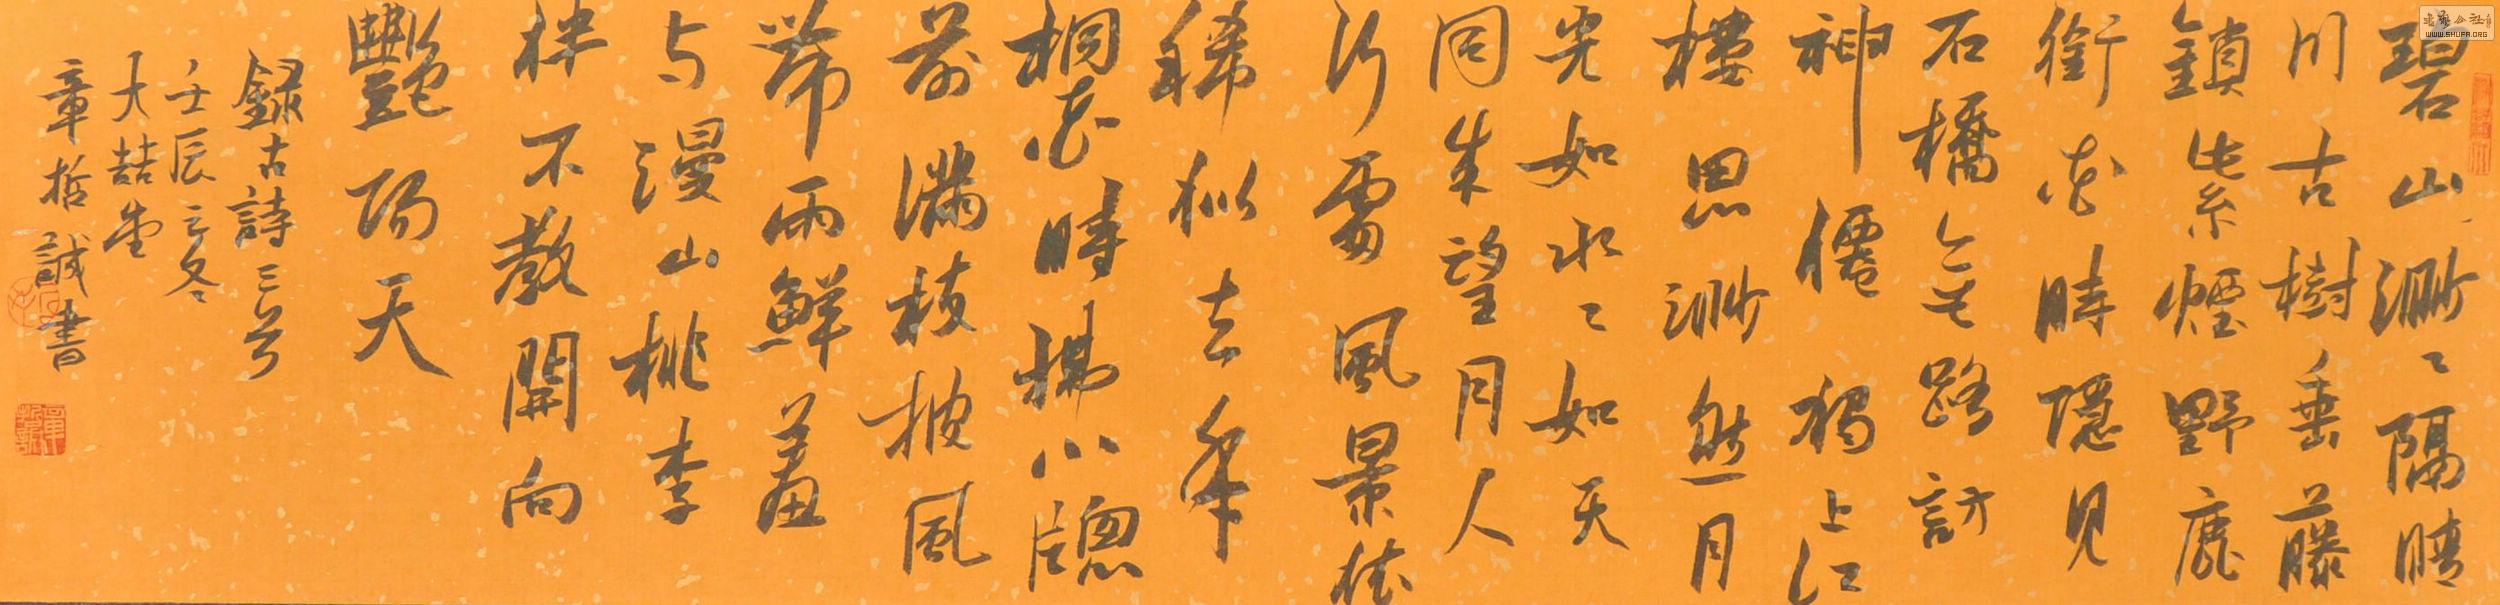 碧山渺〻隔晴
川古樹垂藤
鎖紫煙野鹿
銜花時隱見
石橋無路訪
神僊獨上江
樓思渺然月
光如水〻如天
同来望月人
何處風景依
稀似去年
桐花時拂小牕
前滿枝披風
帶雨鮮羞
与漫山桃李
伴不教開向
艷陽天
録古詩三首
壬辰之冬
大喆堂
章哲誠書
WWW.SHUFA.ORG